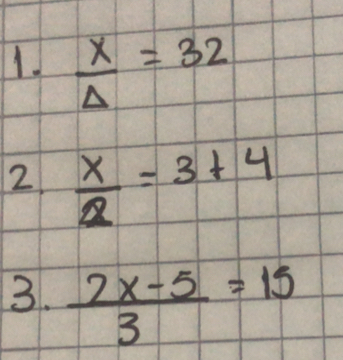 1. x/Δ = 32
2. x/2 = 3 + 4
3. 2x - 5/3 = 15